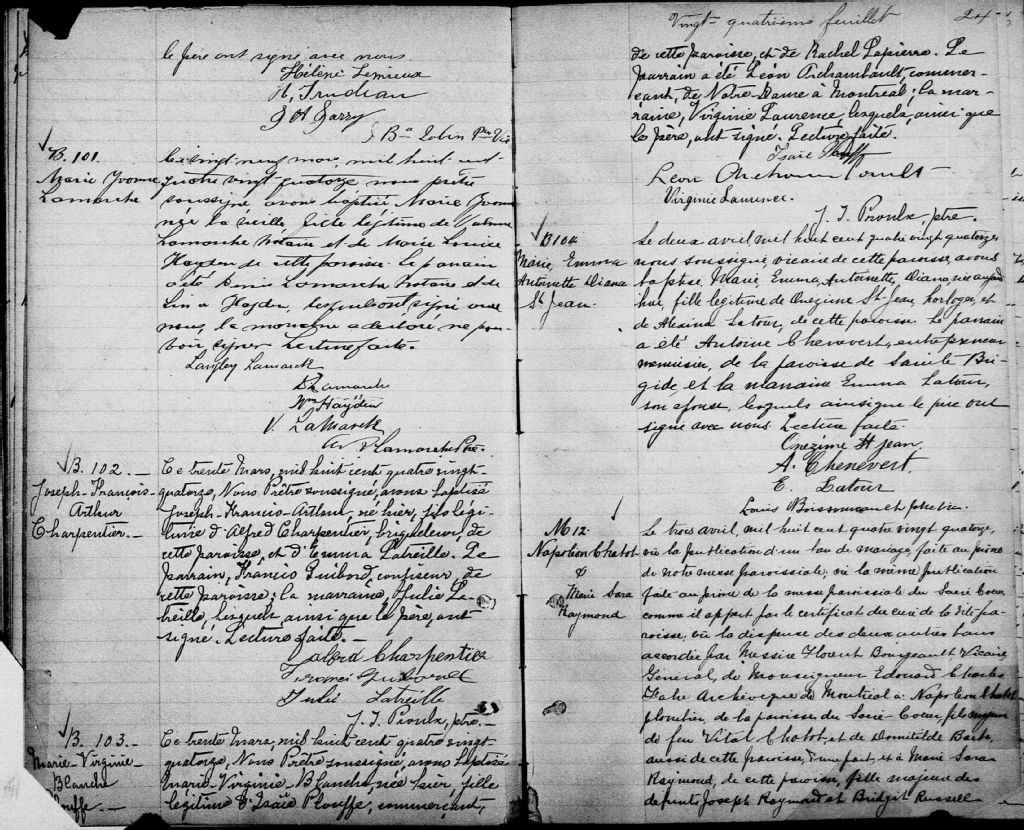 le père ont signé avec nous
Hélène Lemieux
H. Trudeau
J. A. Gazzy
B. 101.
Marie Yvonne
Lamarche
Le vingt neuf mars, mil huit cent
quatre vingt quatorze, nous prêtre
soussigné avons baptisé Marie Yvonne
née la veille, fille légitime de
Lamarche Notaire et de Marie Louise
Hayden de cette paroisse. Le parrain
a été Lamarche Notaire et de
Lina Hayden, lesquels ont signé avec
nous, la marraine a déclaré ne pou-
voir signer. Lecture faite.
Langley Lamarche
D. Lamarche
Wm Hayden
V. LaMarche
Lamarche Ptre.
B. 102. —
Joseph-François-
Arthur
Charpentier. —
Ce trente Mars, mil huit cent quatre vingt-
quatorze, Nous Prêtre soussigné, avons baptisé
Joseph-Francis-Arthur, né hier, fils légi-
time d'Alfred Charpentier, briqueleur, de
cette paroisse, et d'Emma Latreille. Le
parrain, Francis Guibord, confiseur, de
cette paroisse; la marraine, Julie La-
treille, lesquels, ainsi que le père, ont
signé. Lecture faite. —
Alfred Charpentier
Francis Guibord
Julie Latreille
J. I. Proulx, ptre. —
B. 103. —
Marie-Virginie-
Blanche
Plouffe. —
Ce trente Mars, mil huit cent quatre vingt-
quatorze, Nous Prêtre soussigné, avons baptisé
Marie-Virginie-Blanche, née hier, fille
légitime d'Isaïe Plouffe, commerçant,
Vingt-quatrième feuillet 24
de cette paroisse, et de Rachel Lapierre. Le
parrain a été Léon Archambault, commer-
çant, de Notre-Dame à Montréal; la mar-
raine, Virginie Laurence, lesquels, ainsi que
le père, ont signé. Lecture faite.
Isaïe Plouffe
Léon Archambault
Virginie Laurence.
J. I. Proulx, ptre.
B 104
Marie, Emma
Antoinette Diana
St Jean.
Le deux avril mil huit cent quatre vingt quatorze
nous soussigné vicaire de cette paroisse, avons
baptisé Marie, Emma, Antoinette, Diana, née aujourd'
hui, fille légitime de Onezime St Jean, horloger, et
de Alexina Latour, de cette paroisse. Le parrain
a été Antoine Chenevert, entrepreneur
menuisier, de la paroisse de Sainte Bri-
gide, et la marraine Emma Latour,
son épouse, lesquels ainsi que le père ont
signé avec nous. Lecture faite.
Onezime St Jean
A. Chenevert
E. Latour
Louis
M 12.
Napoléon Chatot
&
Marie Sara
Raymond
Le trois avril, mil huit cent quatre vingt quatorze,
vu la publication d'un ban de mariage, faite au prône
de notre messe paroissiale; vu la même publication
faite au prône de la messe paroissiale du Sacré Coeur,
comme il appert par le certificat du curé de la dite pa-
roisse, vu la dispense des deux autres bans
accordée par Messire Florent Bourgeault, Vicaire
Général, de Monseigneur Edouard Charles
Fabre Archevêque de Montréal à: Napoléon Chatot
plombier, de la paroisse du Sacré-Coeur, fils majeur
de feu Vital Chatot, et de Domitilde
aussi de cette paroisse, d'une part, et à Marie Sara
Raymond, de cette paroisse, fille majeure des
défunts Joseph Raymond et Bridgit Russell